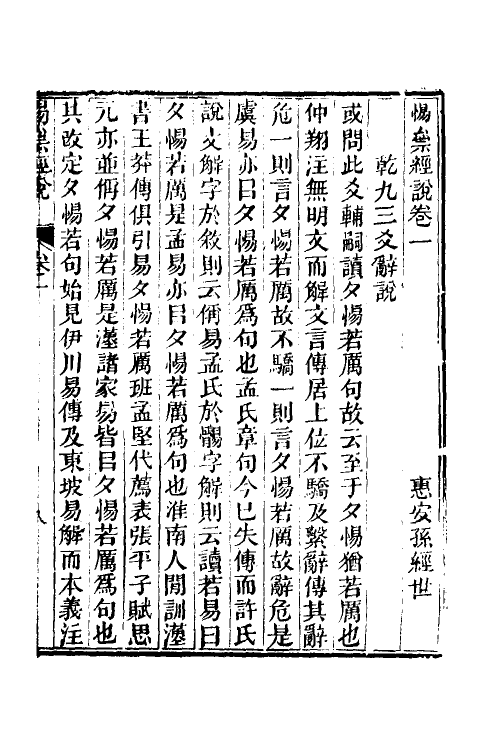 惕𥞤經說卷一
惠安孫經世
乾九三爻辭說
或問此爻輔嗣讀夕惕若厲句故云至于夕惕猶若厲也
仲翔注無明文而解文言傳居上位不驕及繫辭傳其辭
危一則言夕惕若厲故不驕一則言夕惕若厲故辭危是
虞易亦㠯夕惕若厲爲句也孟氏章句今已失傳而許氏
說文解字於夤則云偁易孟氏於䯱字解則云讀若易曰
夕惕若厲是孟易亦㠯夕惕若厲爲句也淮南人閒訓漢
書王莽傳俱引易夕惕若厲班孟堅代薦表張平子賦思
元亦並偁夕惕若厲是漢諸家易皆㠯夕惕若厲爲句也
其改定夕惕若句始見伊川易傳及東坡易解而本義注
卷一